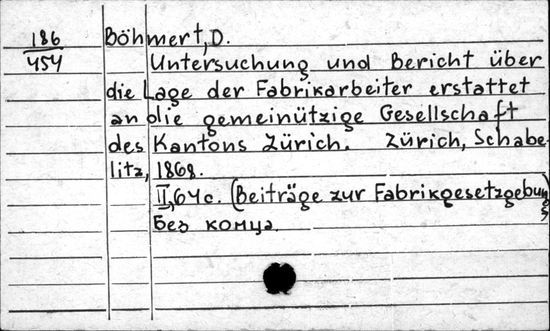 186 Böhmert, D.
454 Untersuchung und Bericht über
die Lage der Fabrikarbeiter erstattet
an die gemeinützige Gesellschaft
des Kantons Zürich. Zürich, Schabe-
litz, 1868.
II, 64 c. (Beiträge zur Fabrikgesetzgebung)
Без конца.